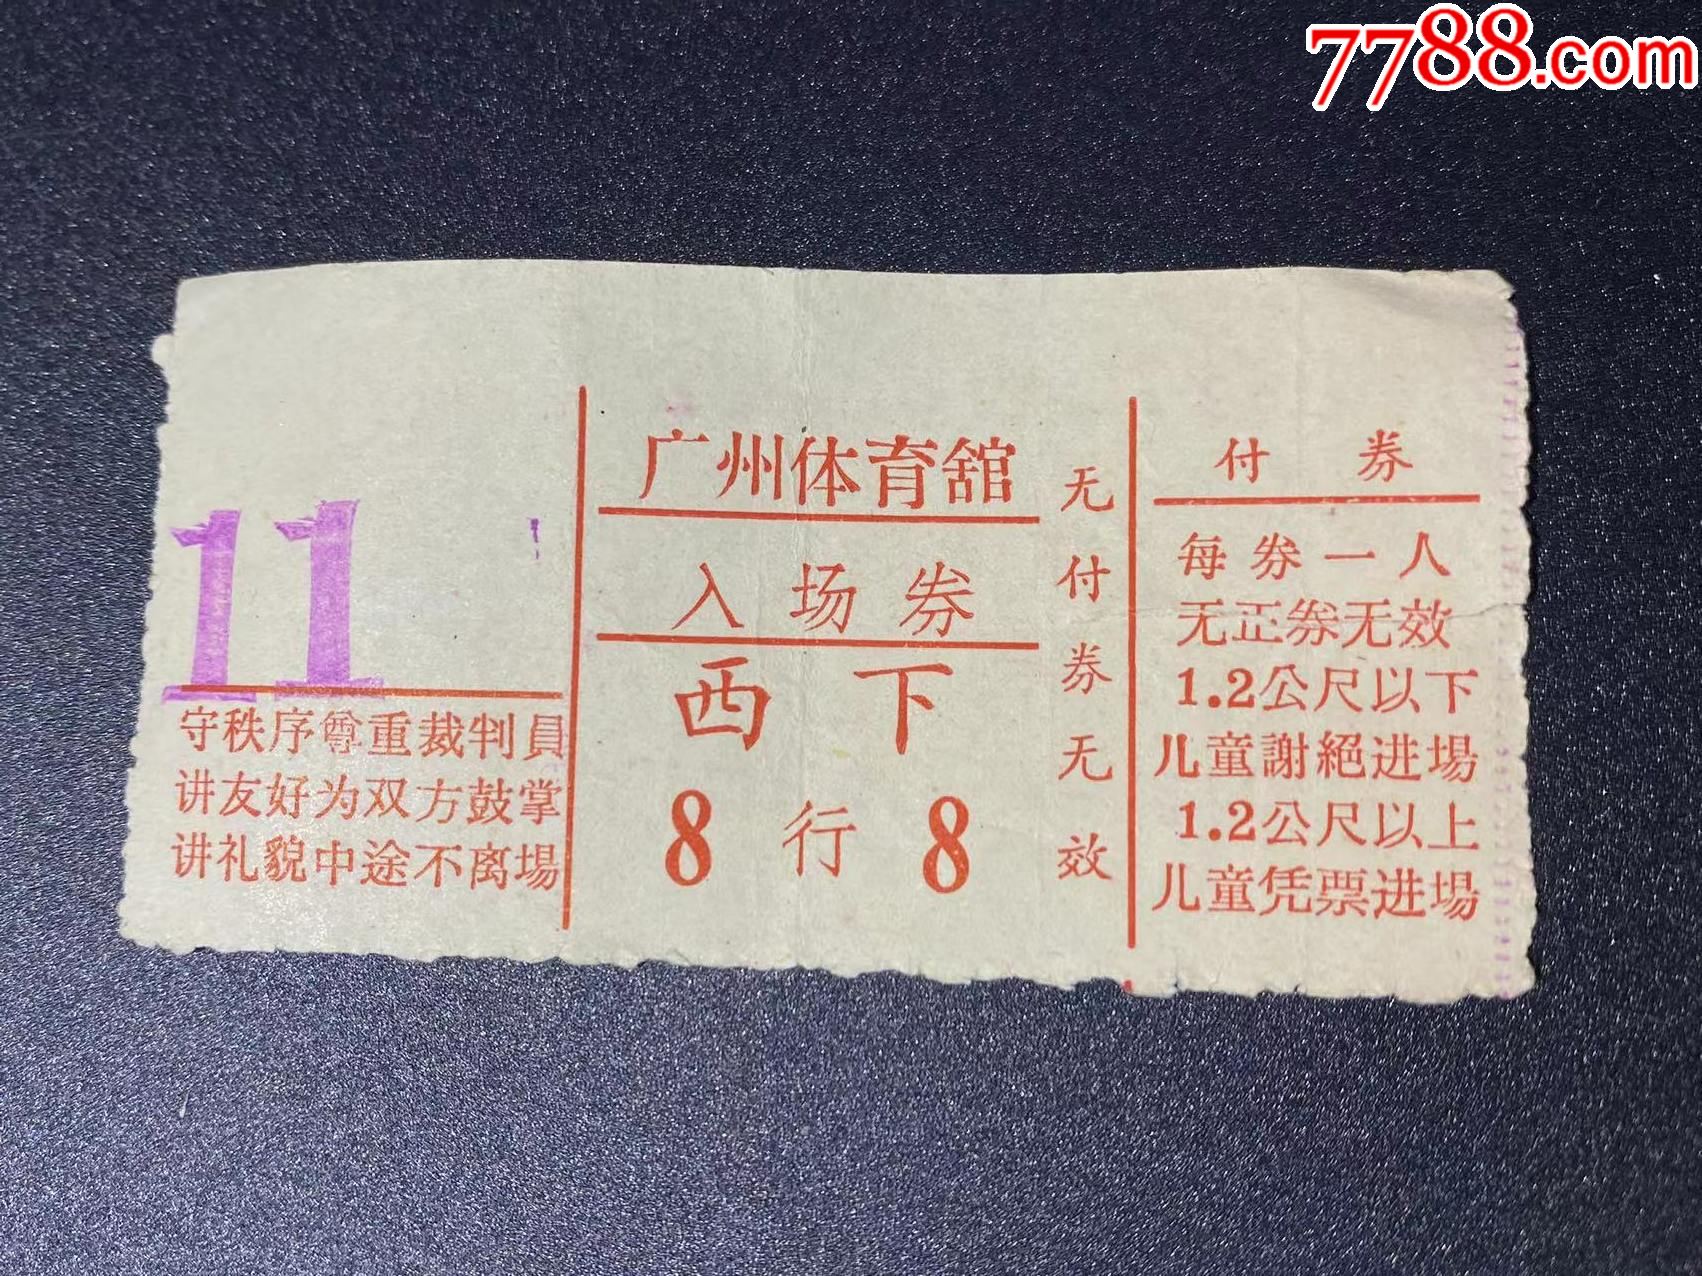 7788.com
11
守秩序尊重裁判員
讲友好为双方鼓掌
讲礼貌中途不离場
广州体育舘
入场券
西下
8行8
无付券无效
付券
每券一人
无正券无效
1.2公尺以下
儿童謝絕进場
1.2公尺以上
儿童凭票进場